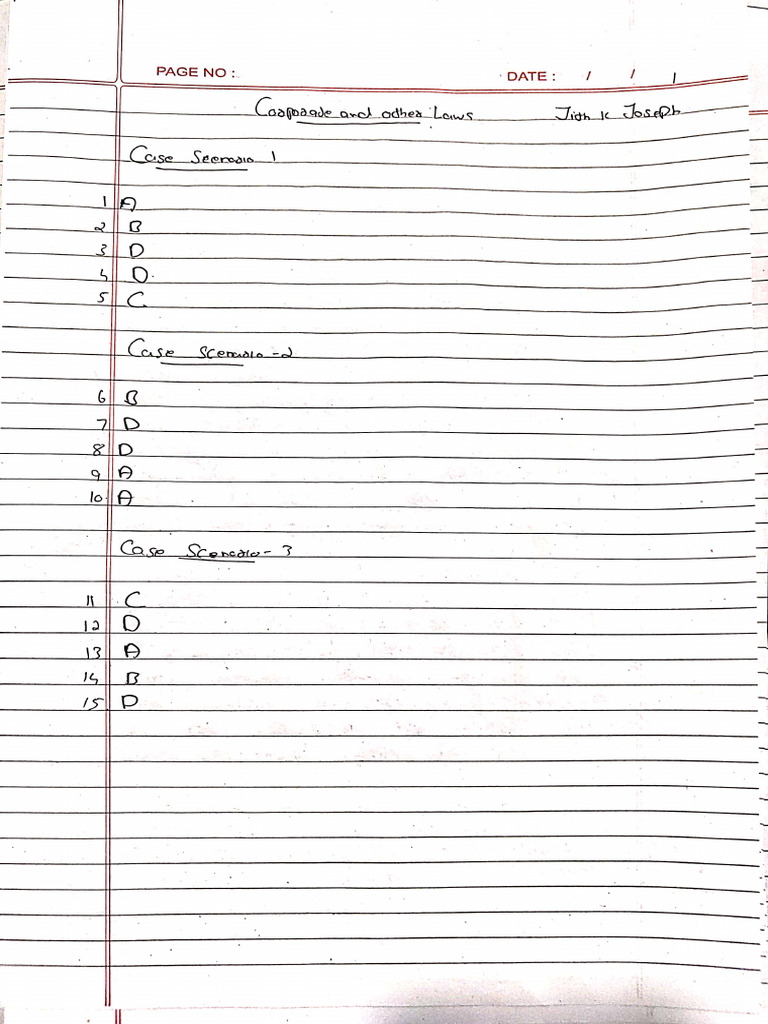 PAGE NO :
DATE : / / 1
Corporate and other Laws Jith K Joseph
Case Scenario 1
1 A
2 B
3 D
4 D.
5 C
Case Scenario - 2
6 B
7 D
8 D
9 A
10. A
Case Scenario - 3
11 C
12 D
13 A
14 B
15 D